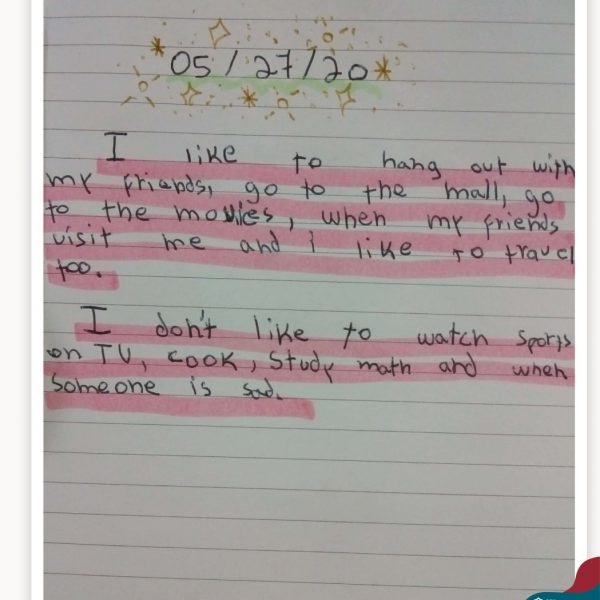 05/27/20
I like to hang out with
my friends, go to the mall, go
to the movies, when my friends
visit me and i like to travel
too.
I don't like to watch sports
on TV, cook, study math and when
someone is sad.